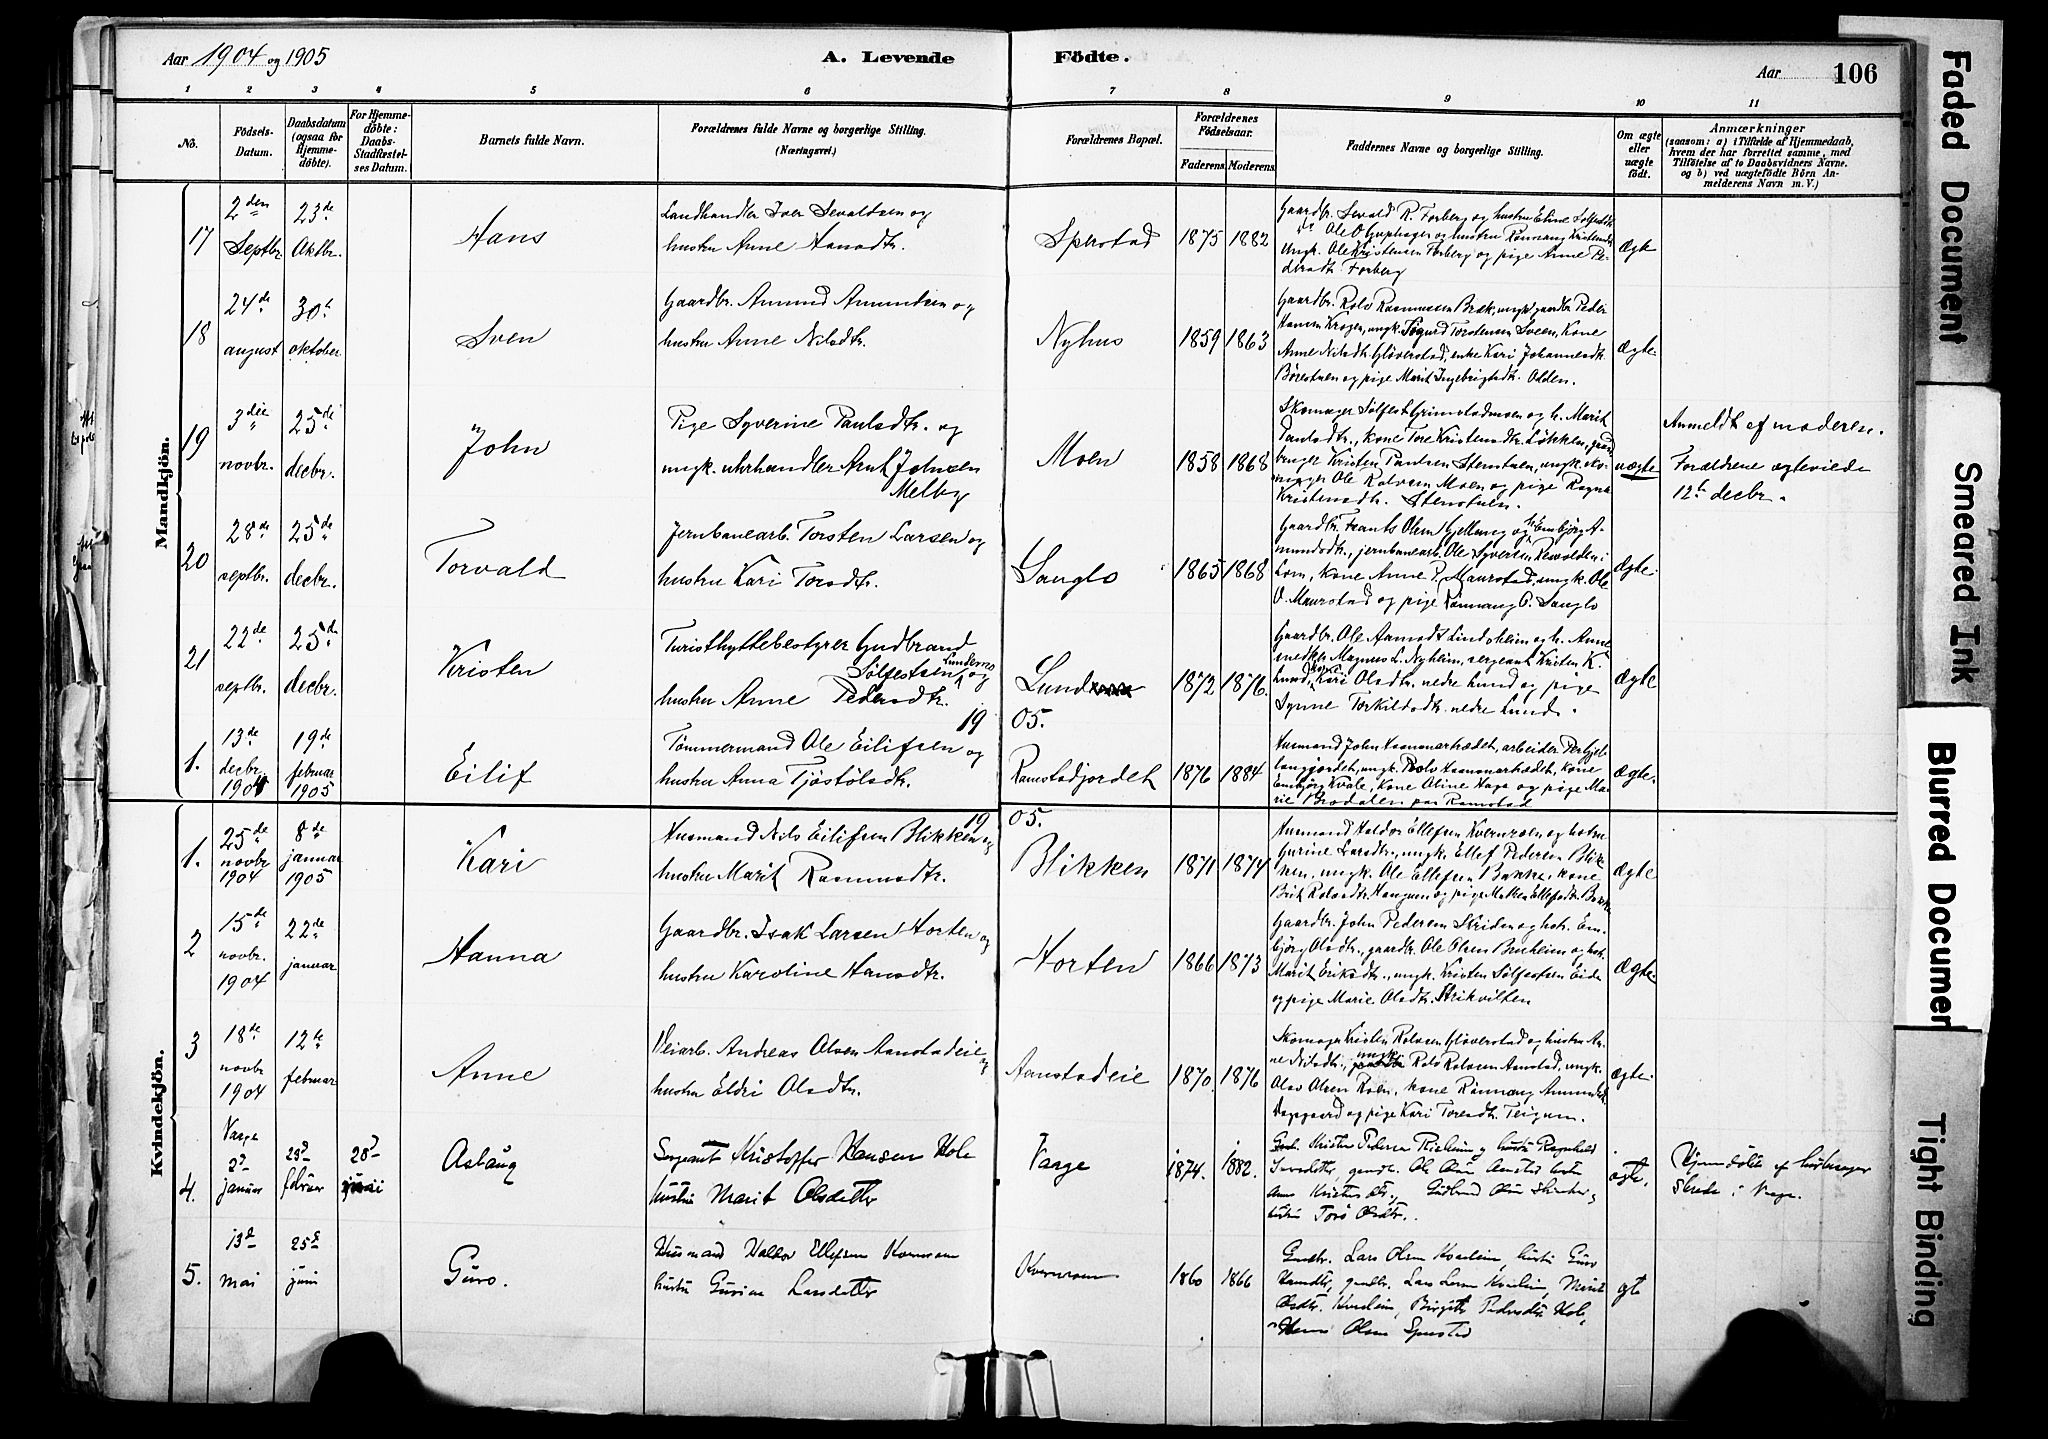 Aar 1904 og 1905
A. Levende
Födte.
Aar
106
1 2 3 4 5 6 7 8 9 10 11
No.
Födsels-
Datum.
Daabsdatum
(ogsaa for
Hjemme-
döbte).
For Hjemme-
döbte:
Daabs-
Stadfæstel-
ses Datum.
Barnets fulde Navn.
Forældrenes fulde Navne og borgerlige Stilling.
(Næringsvei.)
Forældrenes Bopæl.
Forældrenes
Födselsaar.
Faderens. Moderens.
Faddernes Navne og borgerlige Stilling.
Om ægte
eller
uægte
födt.
Anmærkninger
(saasom: a) i Tilfælde af Hjemmedaab,
hvem der har forrettet samme, med
Tilföielse af to Daabsvidners Navne.
og b) ved uægtefödte Börn An-
melderens Navn m. V.)
Mandkjön.
17
2den
Septbr.
23de
Oktbr.
Hans
Landhandler Iver Sevaldsen og
hustru Anne Hansdtr.
Sperstad
1875 1882
Gaardbr. Sevald R. Forberg og hustru Eline Sölfestdtr.
Ole Kristensen Forberg og pige Anne Pe-
dersdtr. Forberg
Ægte
18
24de
august
30te
oktober
Sven
Gaardbr. Amund Amundsen og
hustru Anne Nilsdtr.
Nyhus
1859 1863
Gaardbr. Rolv Rasmussen Bræk, ungk. gaardbr. Peder
Hansen Krogen, ungk. Sigurd Torstensen Sveen, Kone
Anne Nilsdtr. Gløverstad, enke Kari Johannesdtr.
Börestuen og pige Marit Ingebrigtsdtr. Odden.
Ægte.
19
3die
novbr.
25de
decbr.
John
Pige Syverine Paulsdtr. og
ungk. uhrhandler Arnt Johnsen
Melby
Moen
1858 1868
Skomager Sölfest Grimstadmoen og h. Marit
Paulsdtr., kone Tore Kristensdtr. Løkken, gaard-
bruger Kristen Paulsen Stenstuen, ungk. sko-
mager Ole Rolvsen Moen og pige Ragna
Kristensdtr. Stenstuen.
uægte
Anmeldt af moderen.
Forældrene ægteviede
12te decbr.
20
28de
septbr.
25de
decbr.
Torvald
Jernbanearb. Torsten Larsen og
hustru Kari Torsdtr.
Sanglo
1865 1868
Gaardbr. Frants Olsen Gjellung og h. Embjørg A-
mundsdtr., jernbanearb. Ole Syversen
Lom, kone Anne P. Maurstad, ungk. Ole
O. Maurstad og pige Rönnaug P. Sanglo
Ægte.
21
22de
septbr.
25de
decbr.
Kristen
Turisthyttebestyrer Gudbrand
Sölfestsen og
hustru Anne Pedersdtr.
Lund
1872 1876.
Gaardbr. Ole Aamodt Lindsheim og h. Anne
snedker Magnus L. Nyheim, sergeant Kristen K.
Lund, kone Kari Olsdtr. nedre Lund og pige
Synne Torkildsdtr. nedre Lund.
Ægte
19 05.
1.
13de
decbr.
1904
19de
februar
1905
Eilif
Tömmermand Ole Eilifsen og
hustru Anna Tjöstölsdtr.
Ramstadjordet
1876 1884
Embjörg Kvale, kone Oline Haga og pige Ma-
rie Brodalen paa Ramstad
Ægte.
Kvindekjön.
19 05.
1.
25de
novbr
1904
8de
januar
1905
Kari
Husmand Nils Eilifsen Blikken og
hustru Marit Rasmusdtr.
Blikken
1871 1874
Husmand Haldor Ellefsen Kvernroen og hustru
Gurine Larsdtr., ungk. Ellef Pedersen Blik-
ken, ungk. Ole Ellefsen Bakke, kone
Brit Rolvsdtr. Haugum og pige Mathea Ellefsdtr. Bakke
Ægte
2
15de
novbr.
1904
22de
januar
Hanna
Gaardbr. Isak Larsen Horten og
hustru Karoline Hansdtr.
Horten
1866 1873
Gaardbr. John Pedersen Skriden og hstr. Em-
björg Olsdtr., gaardbr. Ole Olsen Bruheim og hstr.
Marit Eriksdtr., ungk. Kristen Sölfestsen Eide
og pige Marie Olsdtr. Strikvilten
Ægte.
3
18de
novbr
1904
12te
februar
Anne
Veiarb. Andreas Olsen Aanstadeie og
hustru Eldri Olsdtr.
Aanstadeie
1870. 1876
Skomager Kristen Rolvsen Gløverstad og hustru An-
ne Nilsdtr., ungk. Rolv Rolvsen Aanstad, ungk.
Olav Olsen Roen, kone Rönnaug Amundsdtr.
Uppgaard og pige Kari Toresdtr. Teigum.
ægte.
4.
Vaage
2d
januar
23d
februar
28d
Aslaug
Sergeant Kristoffer Hansen Hole
hustru Marit Olsdatter
Vaage
1874. 1882.
Kristen Pedersen
Hustru Ragnhild
Iversdatter, gaardbr. Ole Olsen Aanstad hustru
Anne Kristensdtr., Gudbrand Olsen
hustru Toro Olsdtr.
ægte.
Hjemdöbt af
Skride i Vaage.
5.
13d
mai
25d
juni
Guro.
Husmand Haldor Ellefsen Kvernroen
hustru Gurine Larsdatter
Kvernroen
1860 1866
Gaardbr. Lars Olsen Kvaleim, hustru Guro
gaardbr. Lars Larsen Kvaleim, Marit
Olsdtr. Kvaleim, Birgitte Pedersdtr. Hole,
Hans Olsen Sperstad
ægte
Faded Document
Smeared Ink
Blurred Documen
Tight Binding